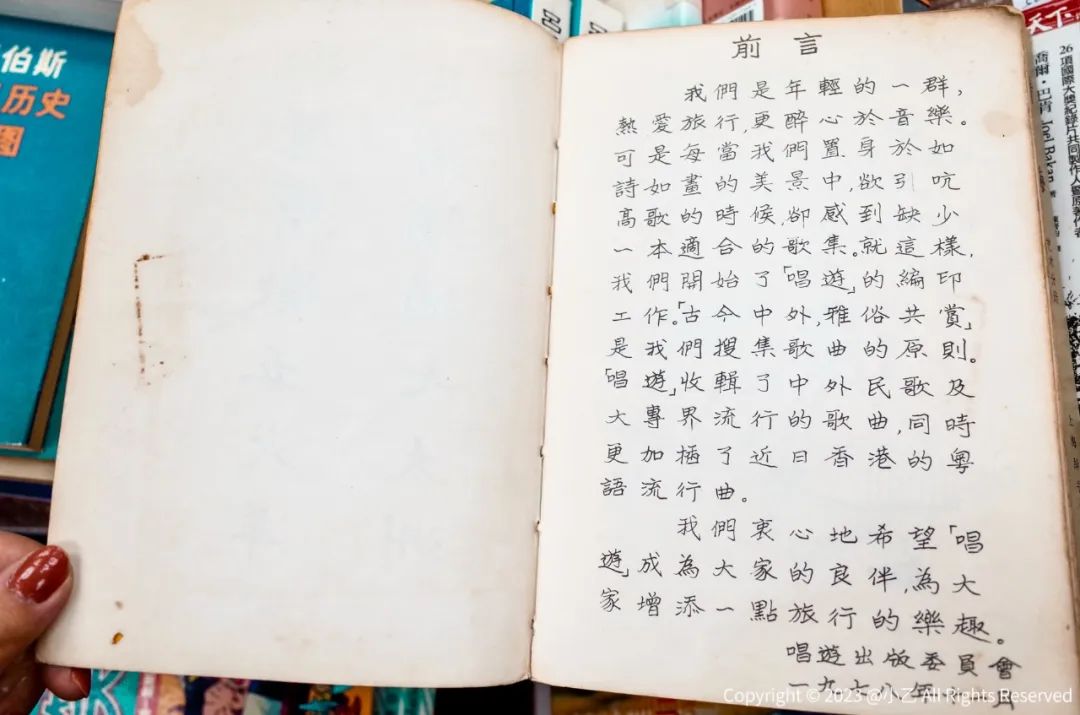 伯斯
历史
图
前言
我們是年輕的一群,
熱愛旅行,更醉心於音樂。
可是每當我們置身於如
詩如畫的美景中,欲引吭
高歌的時候,卻感到缺少
一本適合的歌集。就這樣,
我們開始了「唱遊」的編印
工作。「古今中外,雅俗共賞」
是我們搜集歌曲的原則。
「唱遊」收輯了中外民歌及
大專界流行的歌曲,同時
更加插了近日香港的粵
語流行曲。
我們衷心地希望「唱
遊」成為大家的良伴,為大
家增添一點旅行的樂趣。
唱遊出版委員會
一九七八年
天下
26項國際大獎紀錄片共同製作人暨原著作者
喬爾・巴肯 Joel Bakan 著
Copyright © 2023 @小乙 All Rights Reserved